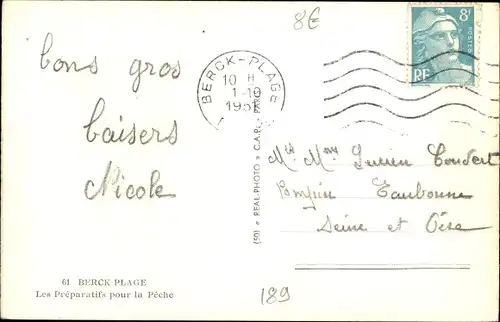 8€
8F
POSTES
RF
BERCK-PLAGE
10 H
1-10
195
bons gros
baisers
Nicole
Mr Mme Lucien
Eaubonne
Seine et Oise
(50) REAL-PHOTO C.A.P. PARIS
61 BERCK PLAGE
Les Préparatifs pour la Pêche
189